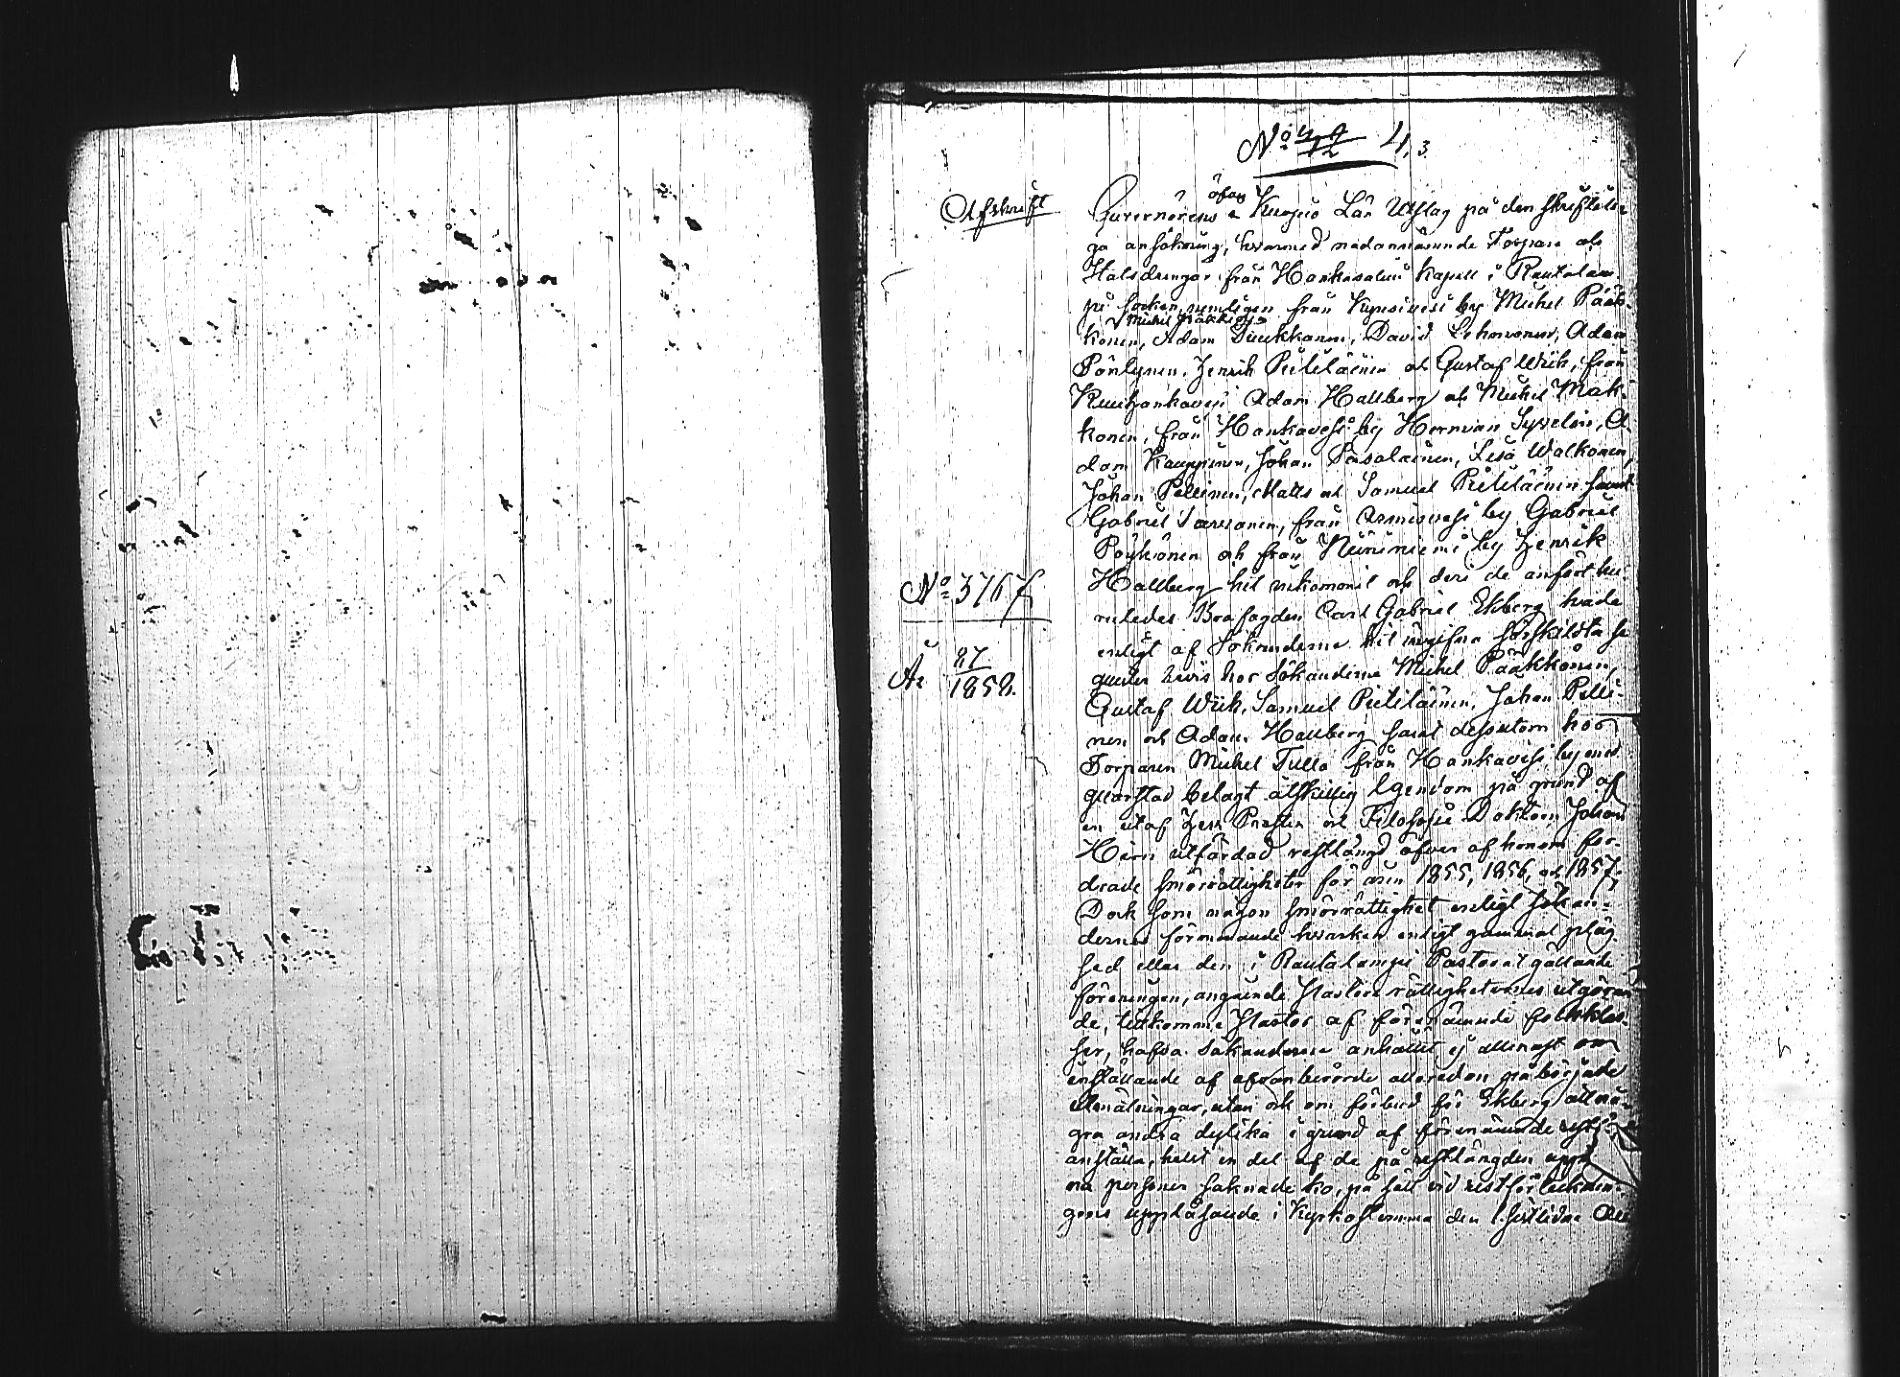 No 49/12 4,3
Afskrift
öfver
Guvernörens i Kuopio Län Utslag på den skrifteli-
ga ansökning, hvarmed nedannämnde Torpare och
Hälsdrengar från Hankasalmi Kapell i Rautalam-
pi socken, nemligen från Kynsivesi by Michel Pääk-
Michel Pääkkönen
konen, Adam Puukkonen, David Lehmonen, Adam
Pönkynen, Henrik Pietiläinen och Gustaf Wiik, från
Kuuhankavesi Adam Hallberg och Michel Mak-
konen, från Hankavesi by Herman Syvelin, A-
dam Kauppinen, Johan Pasalainen, Lisa Walkonen,
Johan Pellinen, Matts och Samuel Pietiläinen samt
Gabriel Parvianen, från Armisvesi by Gabriel
Pöykönen och från Niininiemi by Henrik
Hallberg hit inkommit och deri de anfört hu-
No 3767
ruledes Brofogden Carl Gabriel Ekberg hade
enligt af Sökanderne hit ingifna särskildta se-
År 27/1858.
quester bevis hos Sökanderne Michel Pääkkönen,
Gustaf Wiik, Samuel Pietiläinen, Johan Pelli-
nen och Adam Hallberg samt dessutom hos
Torparen Michel Tulla från Hankavesi by med
qvarstad belagt åtskillig Egendom på grund af
en utaf Herr Prosten och Filosofie Doktorn Johan
Hörn utfärdad restlängd öfver af honom for-
drade smörrättigheter för åren 1855, 1856, och 1857;
Dock som någon smörrättighet enligt Sökan-
dernes förmenande hvarken enligt gammal plag-
sed eller den i Rautalampi Pastorat gällande
föreningen, angående Pastors rättigheternes utgöran-
de, tillkomme Pastor af förenämnde folkklas-
ser, hafva Sökanderne anhållit ej allenast om
inställande af ofvanberörde alleredan påbörjade
utmätningar, utan ock om förbud för Ekberg att nå-
gra andra dylika i grund af förenämnde restl.
anställa, helst en del af de på restlängden uppt.
na personer saknade ko, på sätt vid restförtecknin-
gens uppläsande i Kyrkostämma den 1 sistlidne